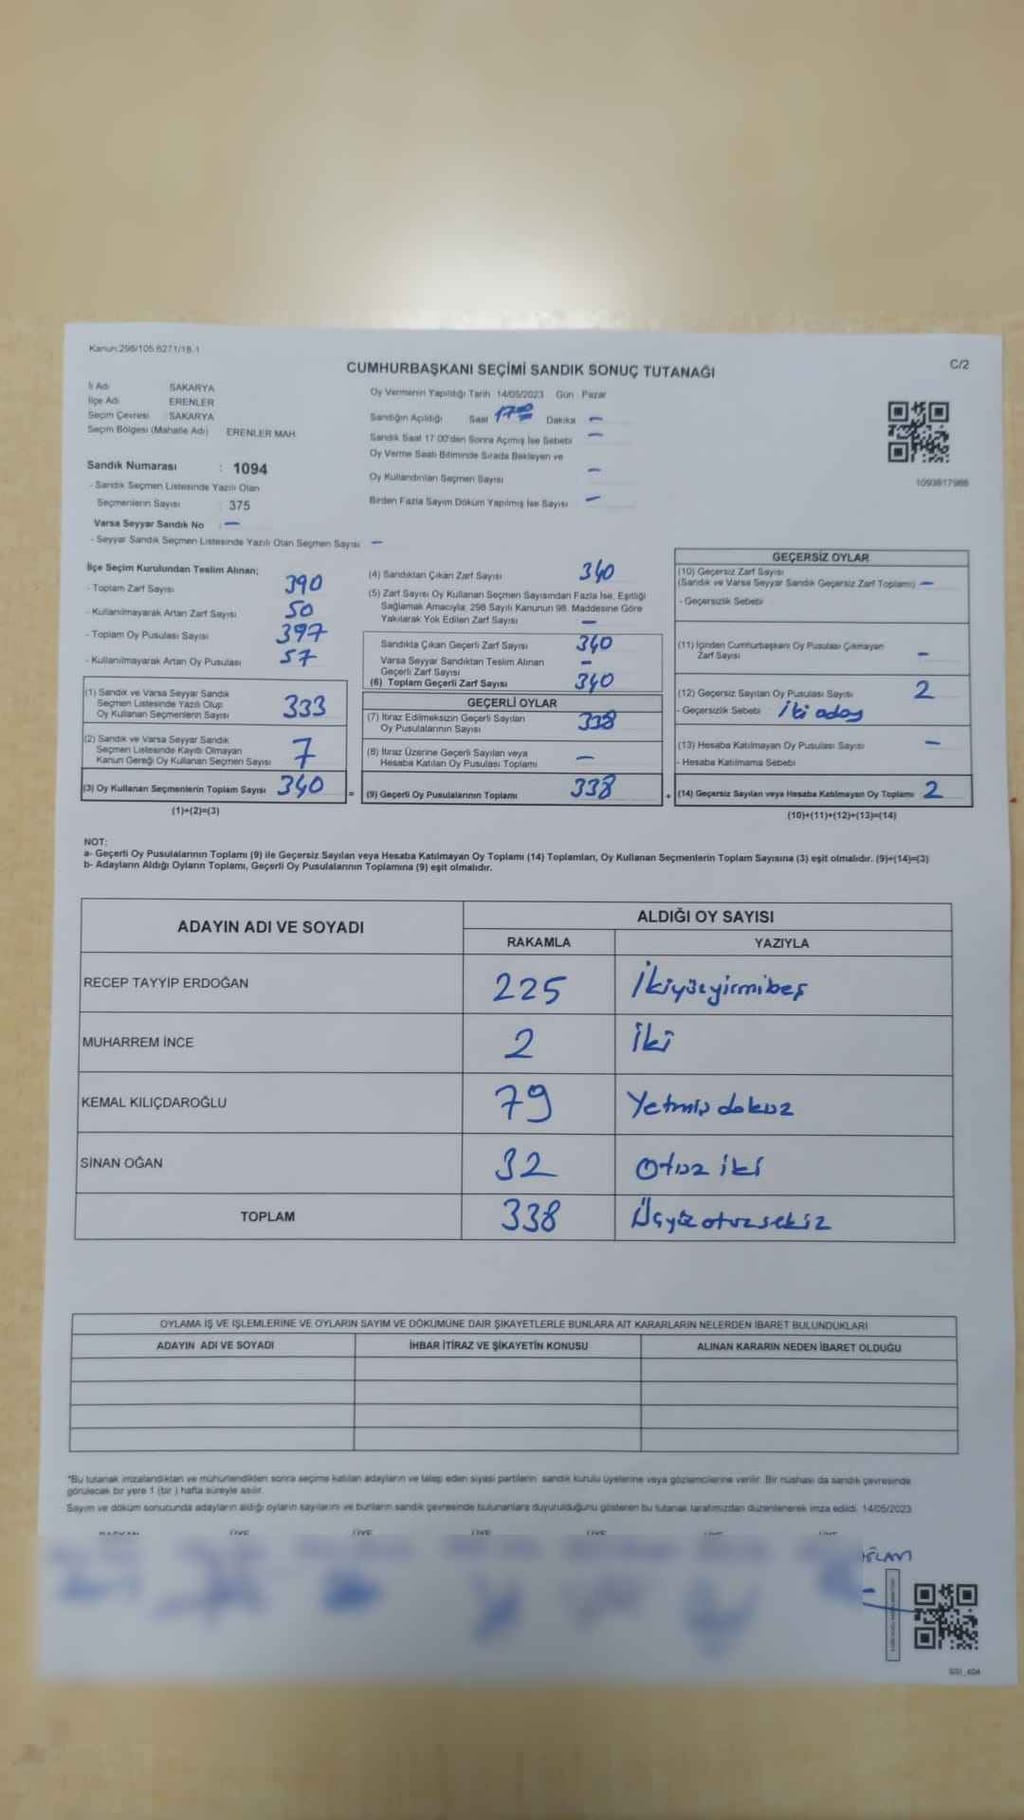 Kanun:298/105.6271/18.1
C/2
CUMHURBAŞKANI SEÇİMİ SANDIK SONUÇ TUTANAĞI
İl Adı SAKARYA
İlçe Adı ERENLER
Seçim Çevresi SAKARYA
Seçim Bölgesi (Mahalle Adı) ERENLER MAH
Sandık Numarası : 1094
- Sandık Seçmen Listesinde Yazılı Olan
Seçmenlerin Sayısı 375
Varsa Seyyar Sandık No : —
- Seyyar Sandık Seçmen Listesinde Yazılı Olan Seçmen Sayısı —
Oy Vermenin Yapıldığı Tarih 14/05/2023 Gün Pazar
Sandığın Açıldığı Saat 17:00 Dakika —
Sandık Saat 17.00'den Sonra Açılmış İse Sebebi —
Oy Verme Saati Bitiminde Sırada Bekleyen ve
Oy Kullandırılan Seçmen Sayısı —
Birden Fazla Sayım Döküm Yapılmış İse Sayısı —
1093817986
İlçe Seçim Kurulundan Teslim Alınan;
- Toplam Zarf Sayısı 390
- Kullanılmayarak Artan Zarf Sayısı 50
- Toplam Oy Pusulası Sayısı 397
- Kullanılmayarak Artan Oy Pusulası 57
(1) Sandık ve Varsa Seyyar Sandık
Seçmen Listesinde Yazılı Olup
Oy Kullanan Seçmenlerin Sayısı 333
(2) Sandık ve Varsa Seyyar Sandık
Seçmen Listesinde Kayıtlı Olmayan
Kanun Gereği Oy Kullanan Seçmen Sayısı 7
(3) Oy Kullanan Seçmenlerin Toplam Sayısı 340 =
(1)+(2)=(3)
(4) Sandıktan Çıkan Zarf Sayısı 340
(5) Zarf Sayısı Oy Kullanan Seçmen Sayısından Fazla İse, Eşitliği
Sağlamak Amacıyla, 298 Sayılı Kanunun 98. Maddesine Göre
Yakılarak Yok Edilen Zarf Sayısı —
Sandıkta Çıkan Geçerli Zarf Sayısı 340
Varsa Seyyar Sandıktan Teslim Alınan
Geçerli Zarf Sayısı —
(6) Toplam Geçerli Zarf Sayısı 340
GEÇERLİ OYLAR
(7) İtiraz Edilmeksizin Geçerli Sayılan
Oy Pusulalarının Sayısı 338
(8) İtiraz Üzerine Geçerli Sayılan veya
Hesaba Katılan Oy Pusulası Toplamı —
(9) Geçerli Oy Pusulalarının Toplamı 338 +
GEÇERSİZ OYLAR
(10) Geçersiz Zarf Sayısı
(Sandık ve Varsa Seyyar Sandık Geçersiz Zarf Toplamı) —
- Geçersizlik Sebebi
(11) İçinden Cumhurbaşkanı Oy Pusulası Çıkmayan
Zarf Sayısı —
(12) Geçersiz Sayılan Oy Pusulası Sayısı 2
- Geçersizlik Sebebi İki aday
(13) Hesaba Katılmayan Oy Pusulası Sayısı —
- Hesaba Katılmama Sebebi
(14) Geçersiz Sayılan veya Hesaba Katılmayan Oy Toplamı 2
(10)+(11)+(12)+(13)=(14)
NOT:
a- Geçerli Oy Pusulalarının Toplamı (9) ile Geçersiz Sayılan veya Hesaba Katılmayan Oy Toplamı (14) Toplamları, Oy Kullanan Seçmenlerin Toplam Sayısına (3) eşit olmalıdır. (9)+(14)=(3)
b- Adayların Aldığı Oyların Toplamı, Geçerli Oy Pusulalarının Toplamına (9) eşit olmalıdır.
ADAYIN ADI VE SOYADI ALDIĞI OY SAYISI
RAKAMLA YAZIYLA
RECEP TAYYİP ERDOĞAN 225 İkiyüzyirmibeş
MUHARREM İNCE 2 İki
KEMAL KILIÇDAROĞLU 79 Yetmiş dokuz
SİNAN OĞAN 32 Otuz iki
TOPLAM 338 Üçyüz otuzsekiz
OYLAMA İŞ VE İŞLEMLERİNE VE OYLARIN SAYIM VE DÖKÜMÜNE DAİR ŞİKAYETLERLE BUNLARA AİT KARARLARIN NELERDEN İBARET BULUNDUKLARI
ADAYIN ADI VE SOYADI İHBAR İTİRAZ VE ŞİKAYETİN KONUSU ALINAN KARARIN NEDEN İBARET OLDUĞU
"Bu tutanak imzalandıktan ve mühürlendikten sonra seçime katılan adayların ve talep eden siyasi partilerin sandık kurulu üyelerine veya gözlemcilerine verilir. Bir nüshası da sandık çevresinde
görülecek bir yere 1 (bir ) hafta süreyle asılır.
Sayım ve döküm sonucunda adayların aldığı oyların sayılarını ve bunların sandık çevresinde bulunanlara duyurulduğunu gösteren bu tutanak tarafımızdan düzenlenerek imza edildi. 14/05/2023